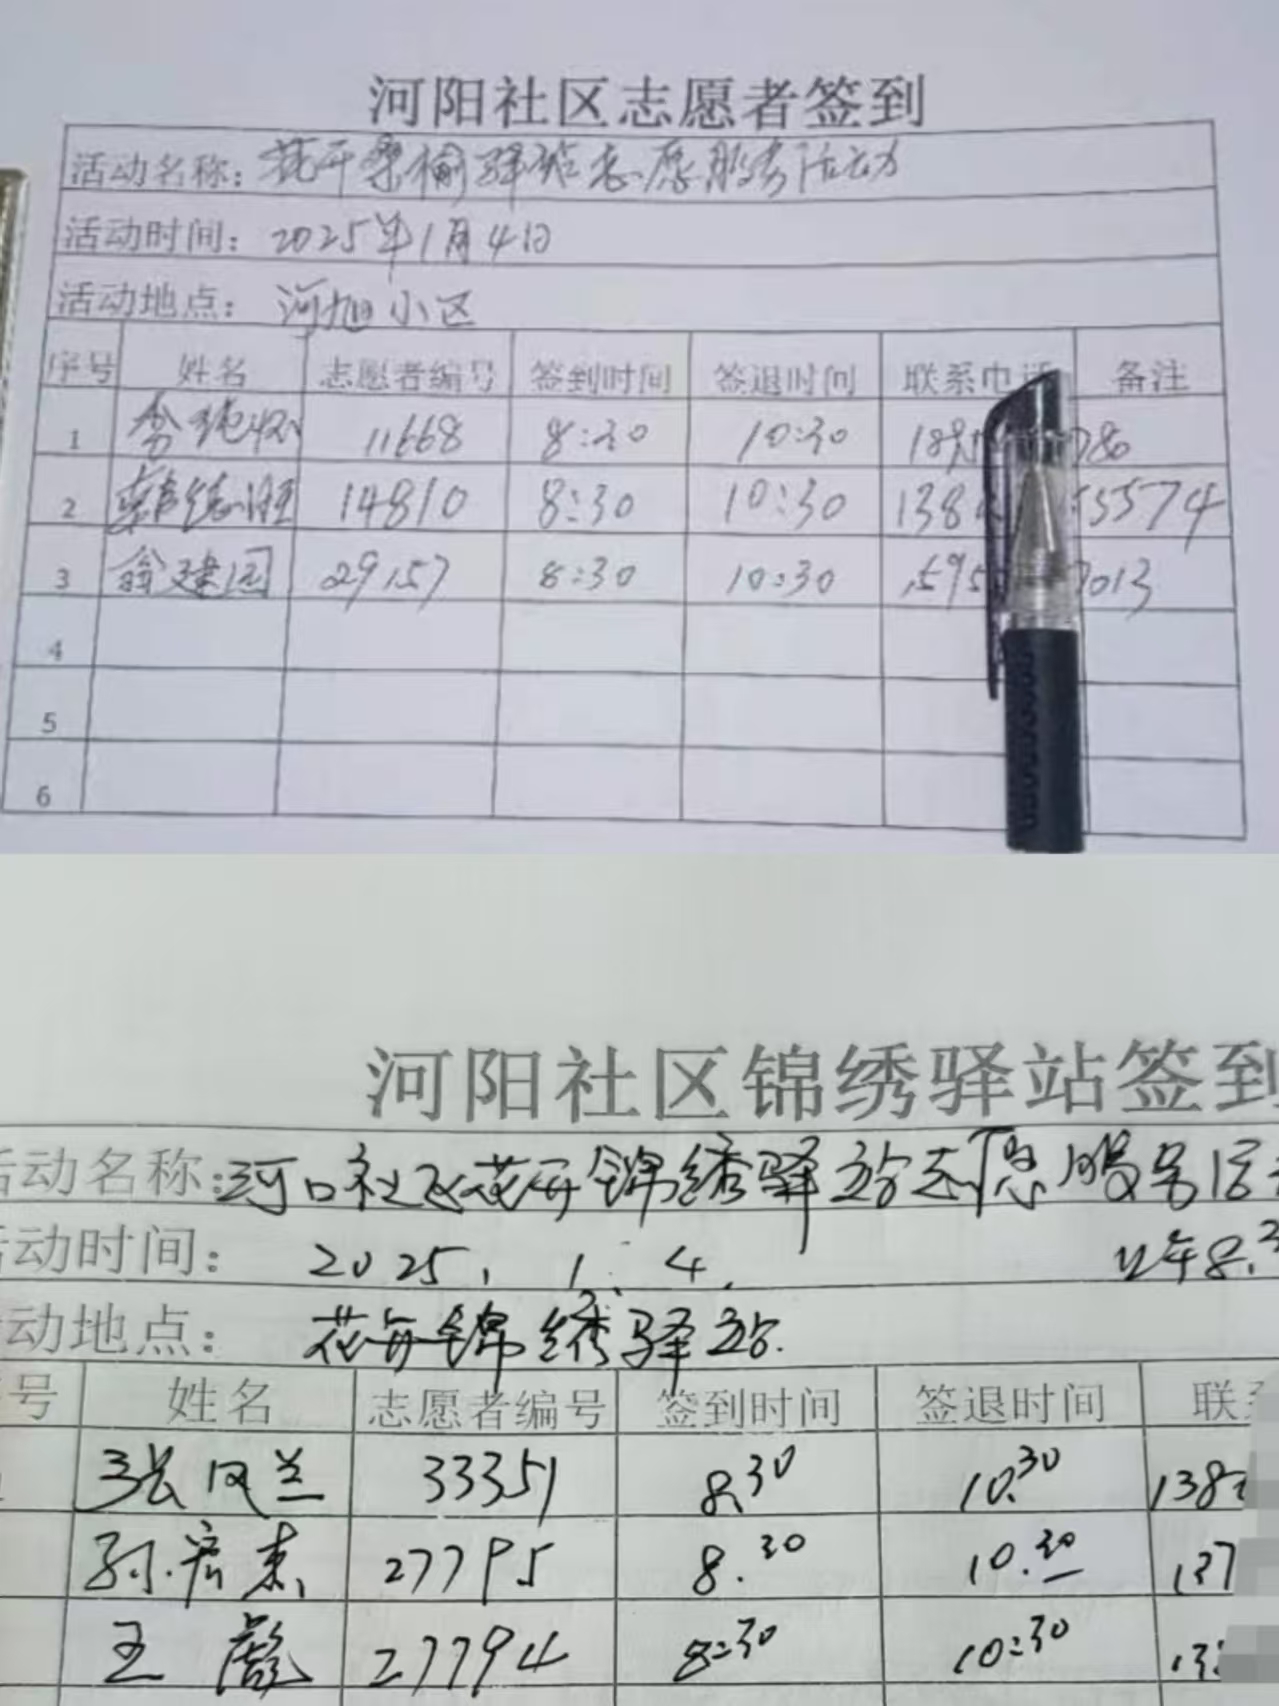 河阳社区志愿者签到
活动名称：花开桑榆驿站志愿服务活动
活动时间：2025年1月4日
活动地点：河旭小区
序号 姓名 志愿者编号 签到时间 签退时间 联系电话 备注
1 11668 8:30 10:30 189 780
2 14810 8:30 10:30 138 55574
3 翁建国 29157 8:30 10:30 1595 7013
4
5
6
河阳社区锦绣驿站签到
活动名称：河口社区花开锦绣驿站志愿服务活
活动时间：2025.1.4. 上午8.3
动地点：花开锦绣驿站.
号 姓名 志愿者编号 签到时间 签退时间 联系
张凤兰 33351 8.30 10.30 138
孙宏 27795 8.30 10.30 137
王彪 27794 8:30 10:30 13